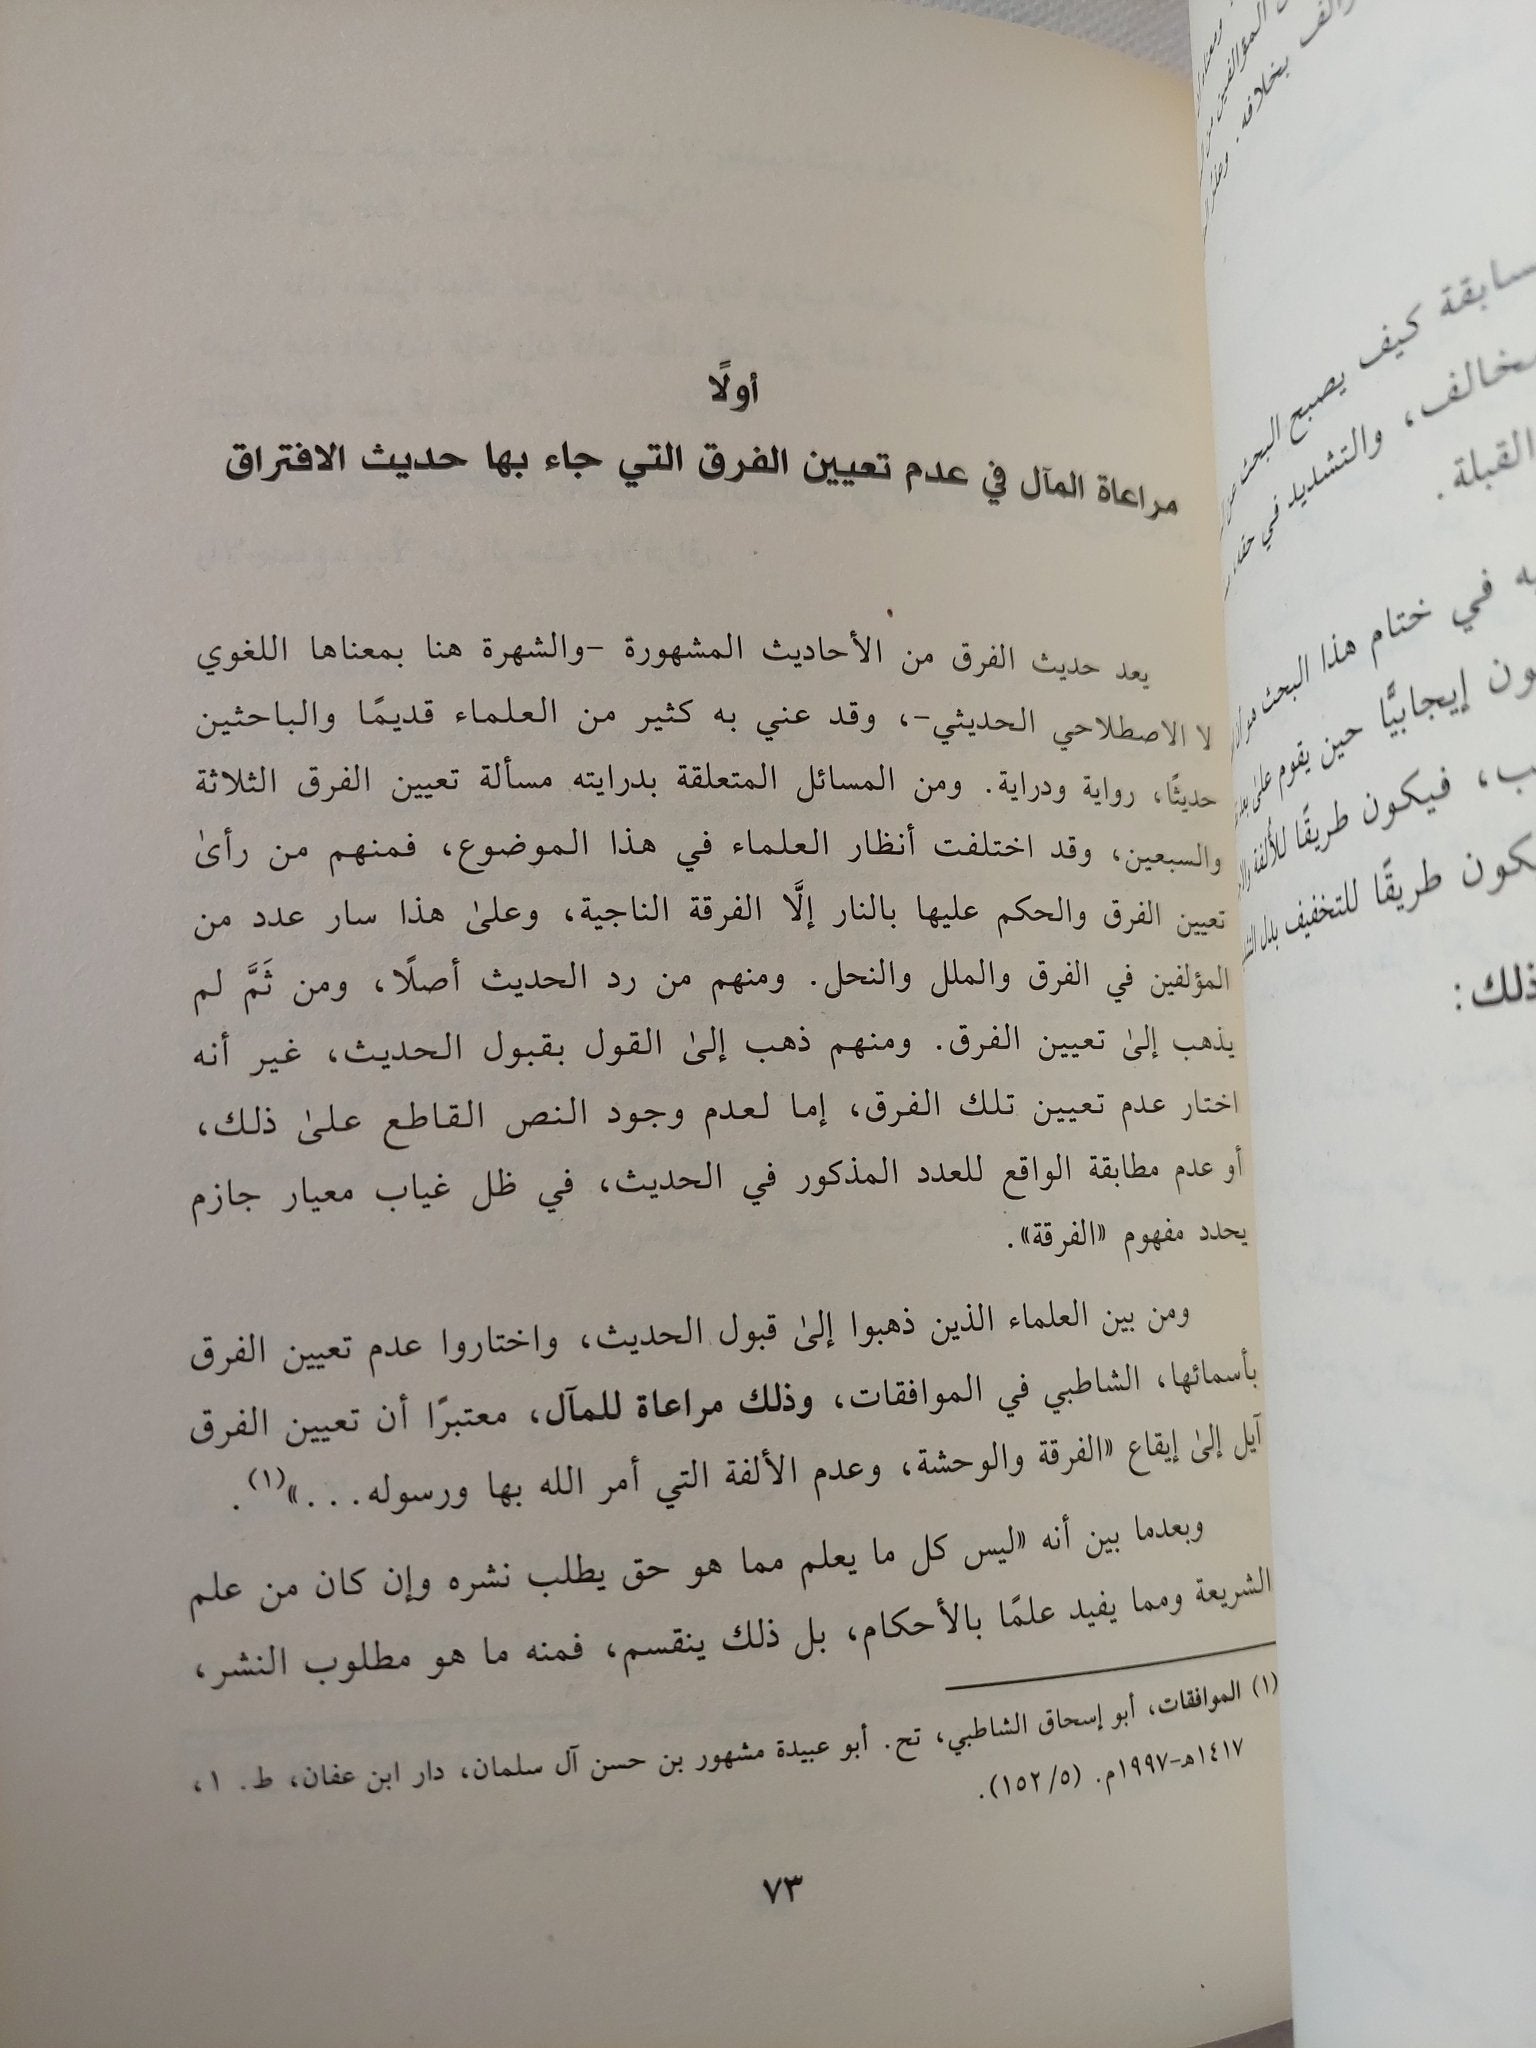 ومعناه
المؤلفين من
يخالف بخلافه.
سابقة كيف يصبح البحث عن
مخالف، والتشديد في حقه
القبلة.
به في ختام هذا البحث هو أن
يكون إيجابيًّا حين يقوم علىٰ
فيكون طريقًا للألفة
يكون طريقًا للتخفيف بدل
ذلك:
أولًا
مراعاة المآل في عدم تعيين الفرق التي جاء بها حديث الافتراق
يعد حديث الفرق من الأحاديث المشهورة –والشهرة هنا بمعناها اللغوي
لا الاصطلاحي الحديثي–، وقد عني به كثير من العلماء قديمًا والباحثين
حديثًا، رواية ودراية. ومن المسائل المتعلقة بدرايته مسألة تعيين الفرق الثلاثة
والسبعين، وقد اختلفت أنظار العلماء في هذا الموضوع، فمنهم من رأىٰ
تعيين الفرق والحكم عليها بالنار إلَّا الفرقة الناجية، وعلىٰ هذا سار عدد من
المؤلفين في الفرق والملل والنحل. ومنهم من رد الحديث أصلًا، ومن ثَمَّ لم
يذهب إلىٰ تعيين الفرق. ومنهم ذهب إلىٰ القول بقبول الحديث، غير أنه
اختار عدم تعيين تلك الفرق، إما لعدم وجود النص القاطع علىٰ ذلك،
أو عدم مطابقة الواقع للعدد المذكور في الحديث، في ظل غياب معيار جازم
يحدد مفهوم «الفرقة».
ومن بين العلماء الذين ذهبوا إلىٰ قبول الحديث، واختاروا عدم تعيين الفرق
بأسمائها، الشاطبي في الموافقات، وذلك مراعاة للمآل، معتبرًا أن تعيين الفرق
آيل إلىٰ إيقاع «الفرقة والوحشة، وعدم الألفة التي أمر الله بها ورسوله...»(١).
وبعدما بين أنه «ليس كل ما يعلم مما هو حق يطلب نشره وإن كان من علم
الشريعة ومما يفيد علمًا بالأحكام، بل ذلك ينقسم، فمنه ما هو مطلوب النشر،
(١) الموافقات، أبو إسحاق الشاطبي، تح. أبو عبيدة مشهور بن حسن آل سلمان، دار ابن عفان، ط. ١،
١٤١٧هـ–١٩٩٧م. (٥/ ١٥٢).
٧٣